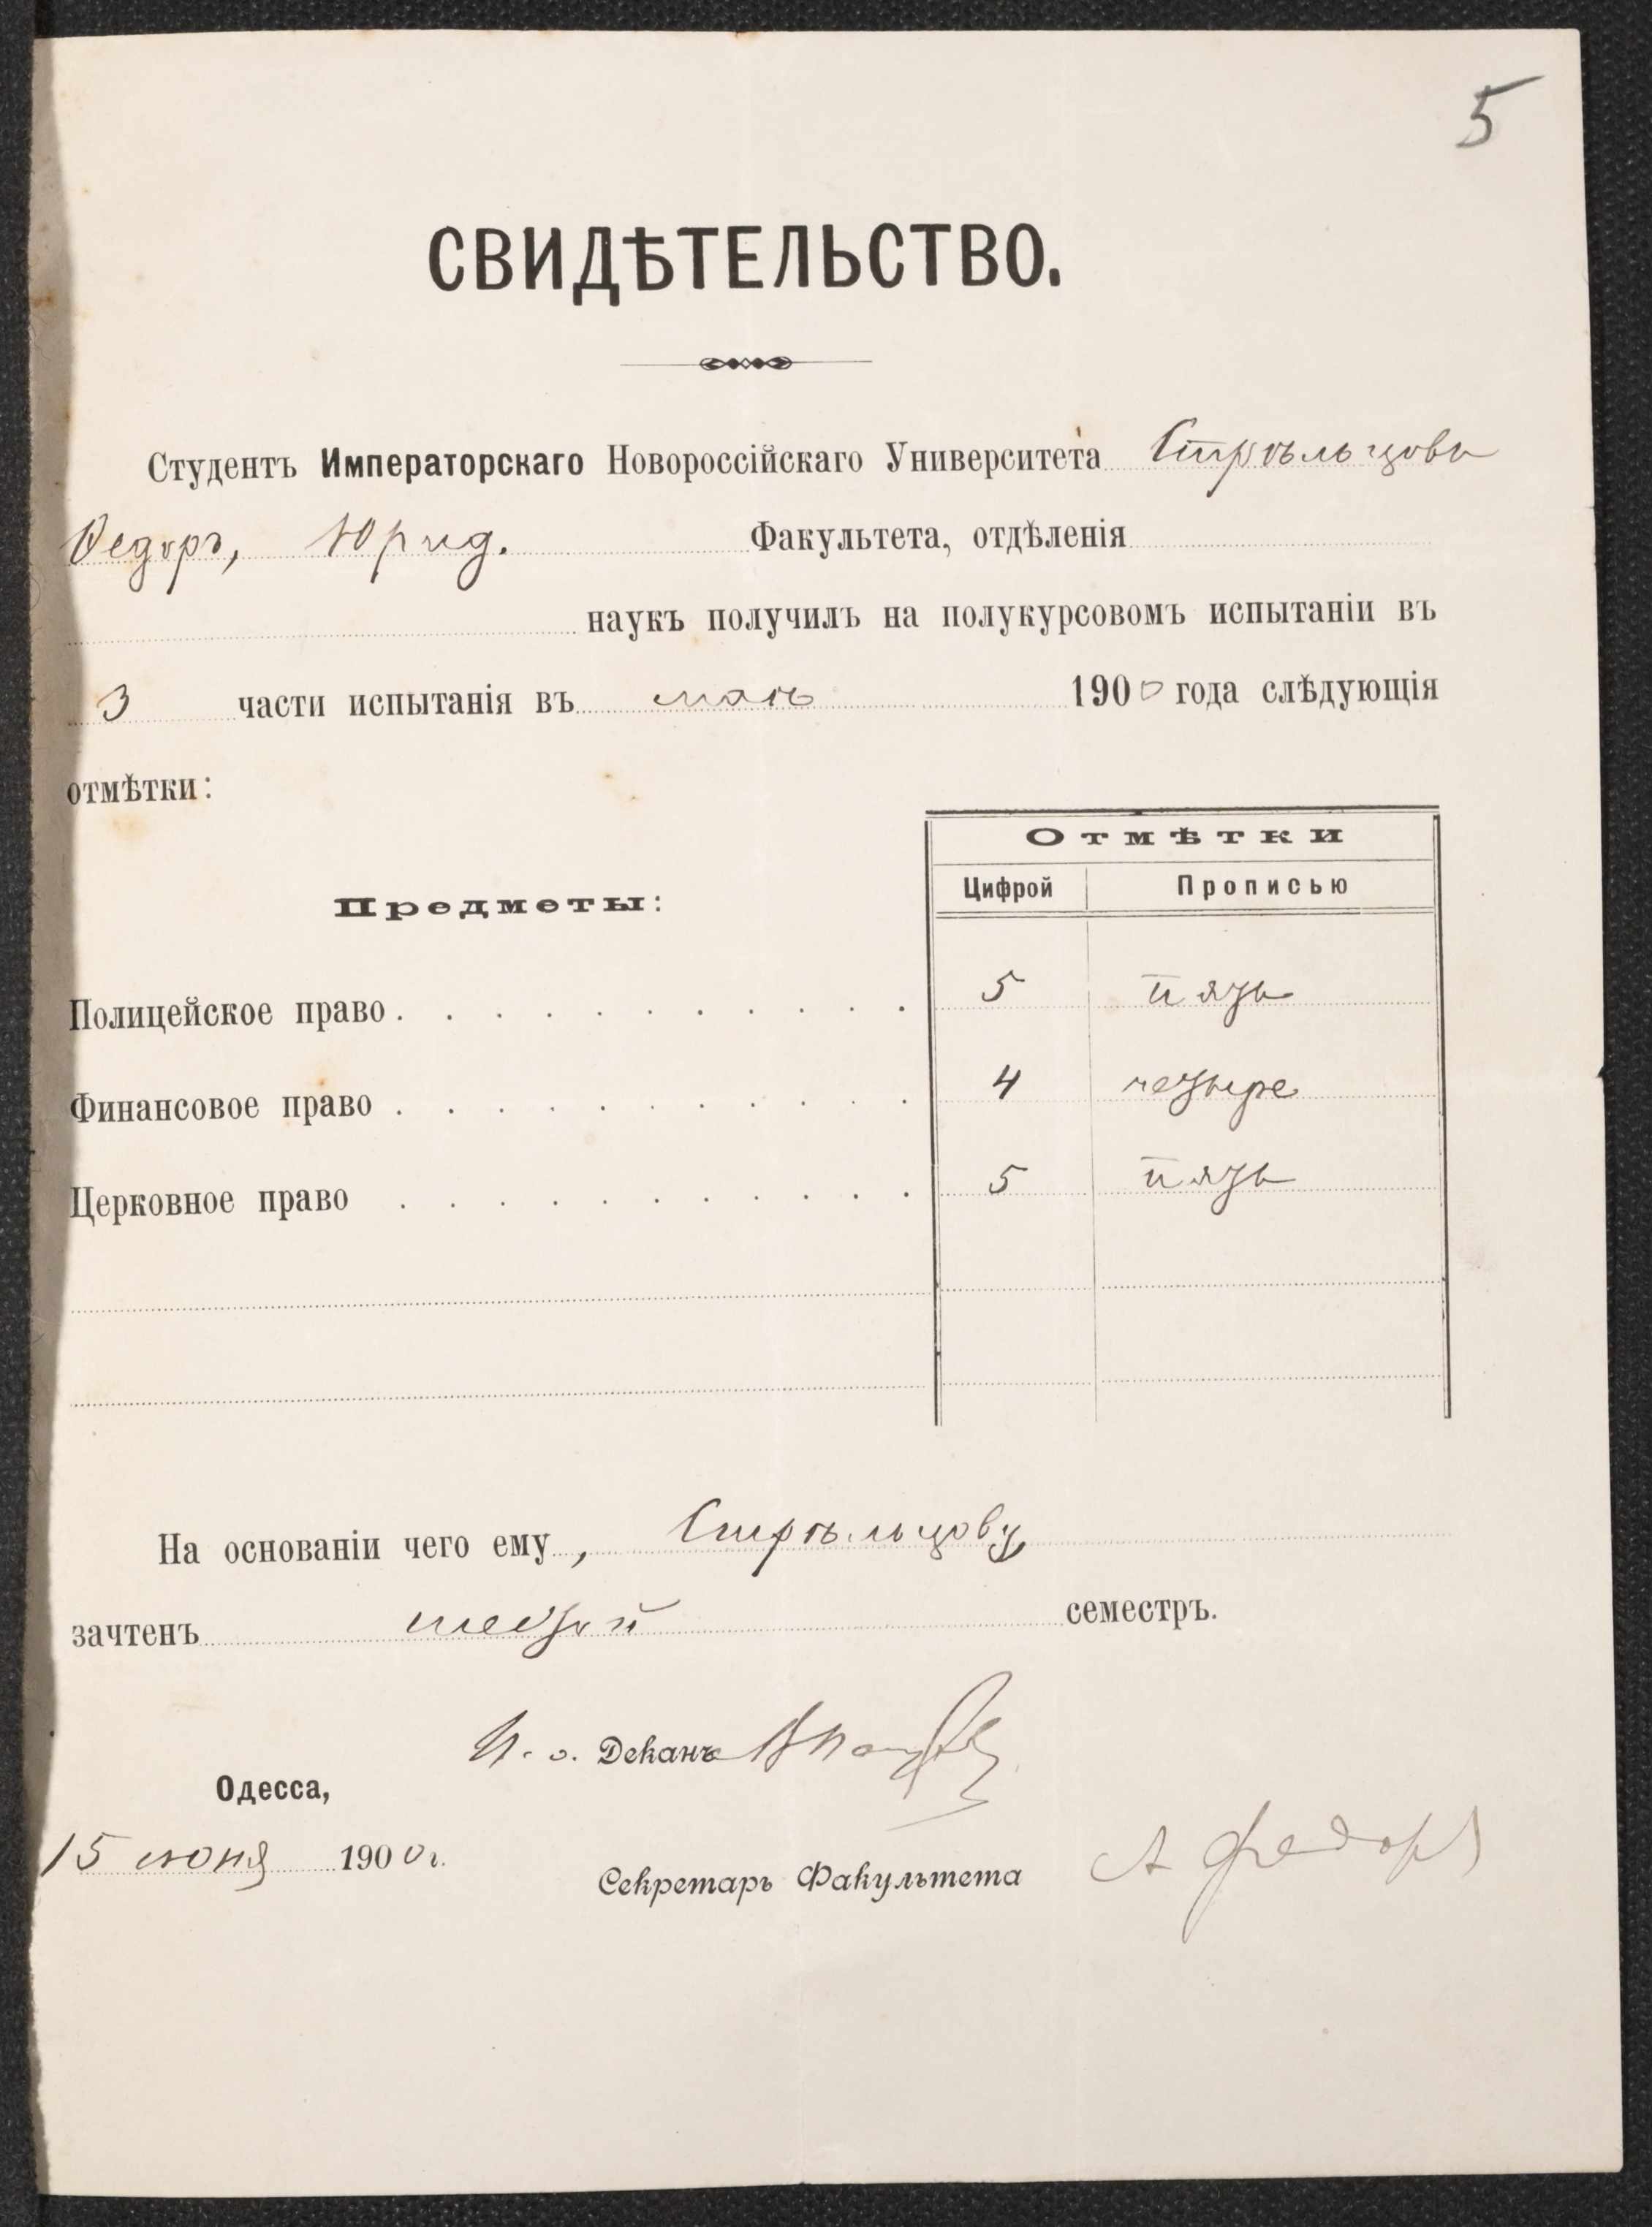 5
СВИДѢТЕЛЬСТВО.
Студентъ Императорскаго Новороссійскаго Университета Стрѣльцовъ
Ѳедоръ, Юрид. Факультета, отдѣленія
наукъ получилъ на полукурсовомъ испытаніи въ
3 части испытанія въ маѣ 1900 года слѣдующія
отмѣтки:
Отмѣтки
Предметы: Цифрой Прописью
Полицейское право . . . . . . . . . . . 5 пять
Финансовое право . . . . . . . . . . . 4 четыре
Церковное право . . . . . . . . . . . 5 пять
На основаніи чего ему, Стрѣльцову
зачтенъ шестой семестръ.
И. о. Деканъ
Одесса,
15 июня 1900 г.
Секретарь Факультета А Федоров